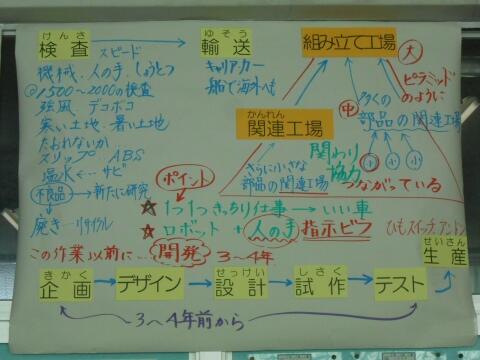 けんさ
検査
ゆそう
輸送
組み立て工場
大
スピード
機械、人の手、しょうとつ
◎1500〜2000の検査
強風 デコボコ
寒い土地、暑い土地
たおれないか
スリップ…ABS
塩水…サビ
不良品→新たに研究
廃き…リサイクル
キャリアカー
船で海外へも
ピラミッド
のように
中
多くの
部品の関連工場
小 小 小
かんれん
関連工場
さらに小さな
部品の関連工場
関わり
協力
つながっている
ポイント
☆1つ1つきっちり仕事→いい車
☆ロボット+人の手 指示ビラ
ひもスイッチ、アンドン
この作業以前に…開発 3〜4年
きかく
企画
デザイン
せっけい
設計
しさく
試作
テスト
せいさん
生産
3〜4年前から